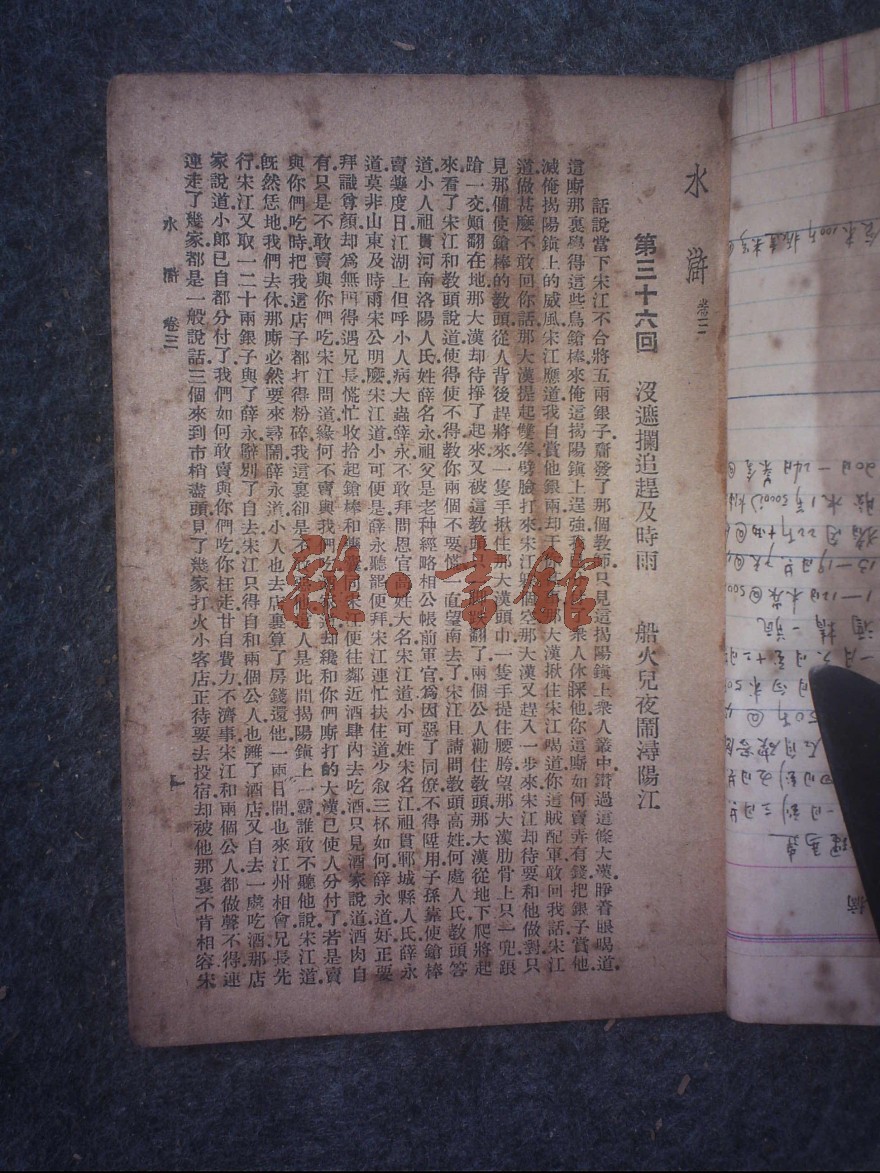 水滸 卷三
第三十六回 沒遮攔追趕及時雨 船火兒夜鬧潯陽江
話說當下宋江不合將五兩銀子齎發了那個教師只見這揭陽鎮上衆人叢中鑽過這條大漢睜着眼喝道
這廝那裏學得這些鳥鎗棒來俺這揭陽鎮上逞強我 衆人休睬他你這廝如何賣弄有錢把銀子賞他
滅俺揭陽鎮上的威風宋江應道我自賞他銀兩却干 那大漢揪住宋江喝道你這賊配軍敢回我話宋江
道做甚麼不敢回你話那大漢提起雙拳劈臉打來宋江躱個空那大漢又趕入一步來宋江却待要和他做對只
見那個使鎗棒的教頭從人背後趕將來一隻手揪住那大漢頭巾一隻手提住腰胯望那大漢肋骨上只一兜踉
蹌一交顚翻在地那大漢却待挣了起來又被這教頭 踢翻了兩個公人勸住教頭那大漢從地下爬將起
來看了宋江和教頭說道使得使不得教你兩個不要慌一直望南去了宋江且請問教頭高姓何處人氏教頭答
道小人祖貫河南洛陽人氏姓薛名永祖父是老种經略相公帳前軍官爲因惡了同僚不得陞用子孫靠使鎗棒
賣藥度日江湖上但呼小人病大蟲薛永不敢拜問恩官高姓大名宋江道小可姓宋名江祖貫鄆城縣人氏薛永
道莫非山東及時雨宋公明麼宋江道小可便是薛永聽罷便拜宋江連忙扶住道少叙三杯如何薛永道好正要
拜識尊顏却爲無門得遇兄長慌忙收拾起鎗棒和藥囊同宋江便往鄰近酒肆內去吃酒只見酒家說道酒肉自
有只是不敢賣與你們吃宋江問道緣何不賣與我們吃 却纔和你們廝打的大漢已使人分付了若是賣
與你們吃時把我這店子都打得粉碎我這裏却是不 人是此間揭陽鎮上一霸誰敢不聽他說宋江道
旣然恁地我們去休那廝必然要來尋鬧薛永道小人也去店裏算了房錢還他一兩日間也來江州相會兄長先
行宋江又取一二十兩銀子與了薛永辭別了自去宋江只得自和兩個公人也離了酒店又自去一處吃酒那店
家說道小郎已自都分付了我們如何敢賣與你們吃你枉走甘自費力不濟事宋江和兩個公人都做聲不得連
連走了幾家都是一般說話三個來到市梢盡頭見了幾家打火小客店正待要去投宿却被他那裏不肯相容宋
水滸 卷三
一
雜·書館